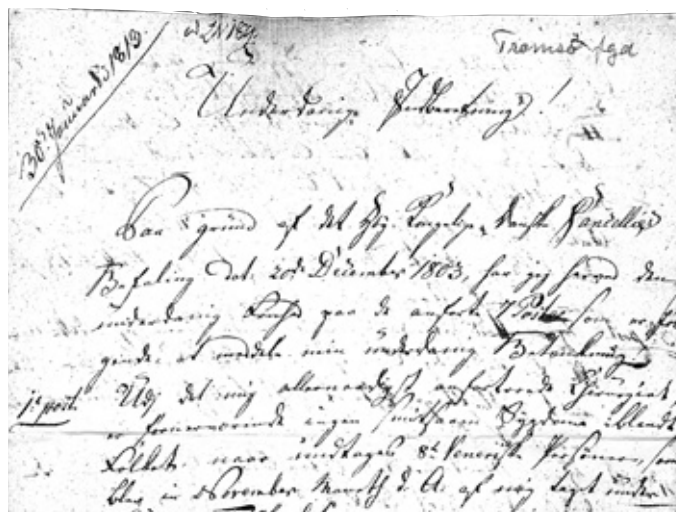 30te Januarii 1813.
Tromsø fgd
Underdanig Indberetning!
Paa grund af det Høy Kongelige Danske Cancellies
Befaling dat. 20de December 1803, har jeg herved den
underdanig paa de anførte 7 Poster som er
gende at meddele min underdanig Betænkning
1te post. Udj det mig allernaadigst anfortroede Chirurgiat,
er forneværende ingen smitsom Sygdome iblandt
Folket, naar undtages 8te Veneriske Personer, som
blev in November Maaneth d. A. af mig taget under